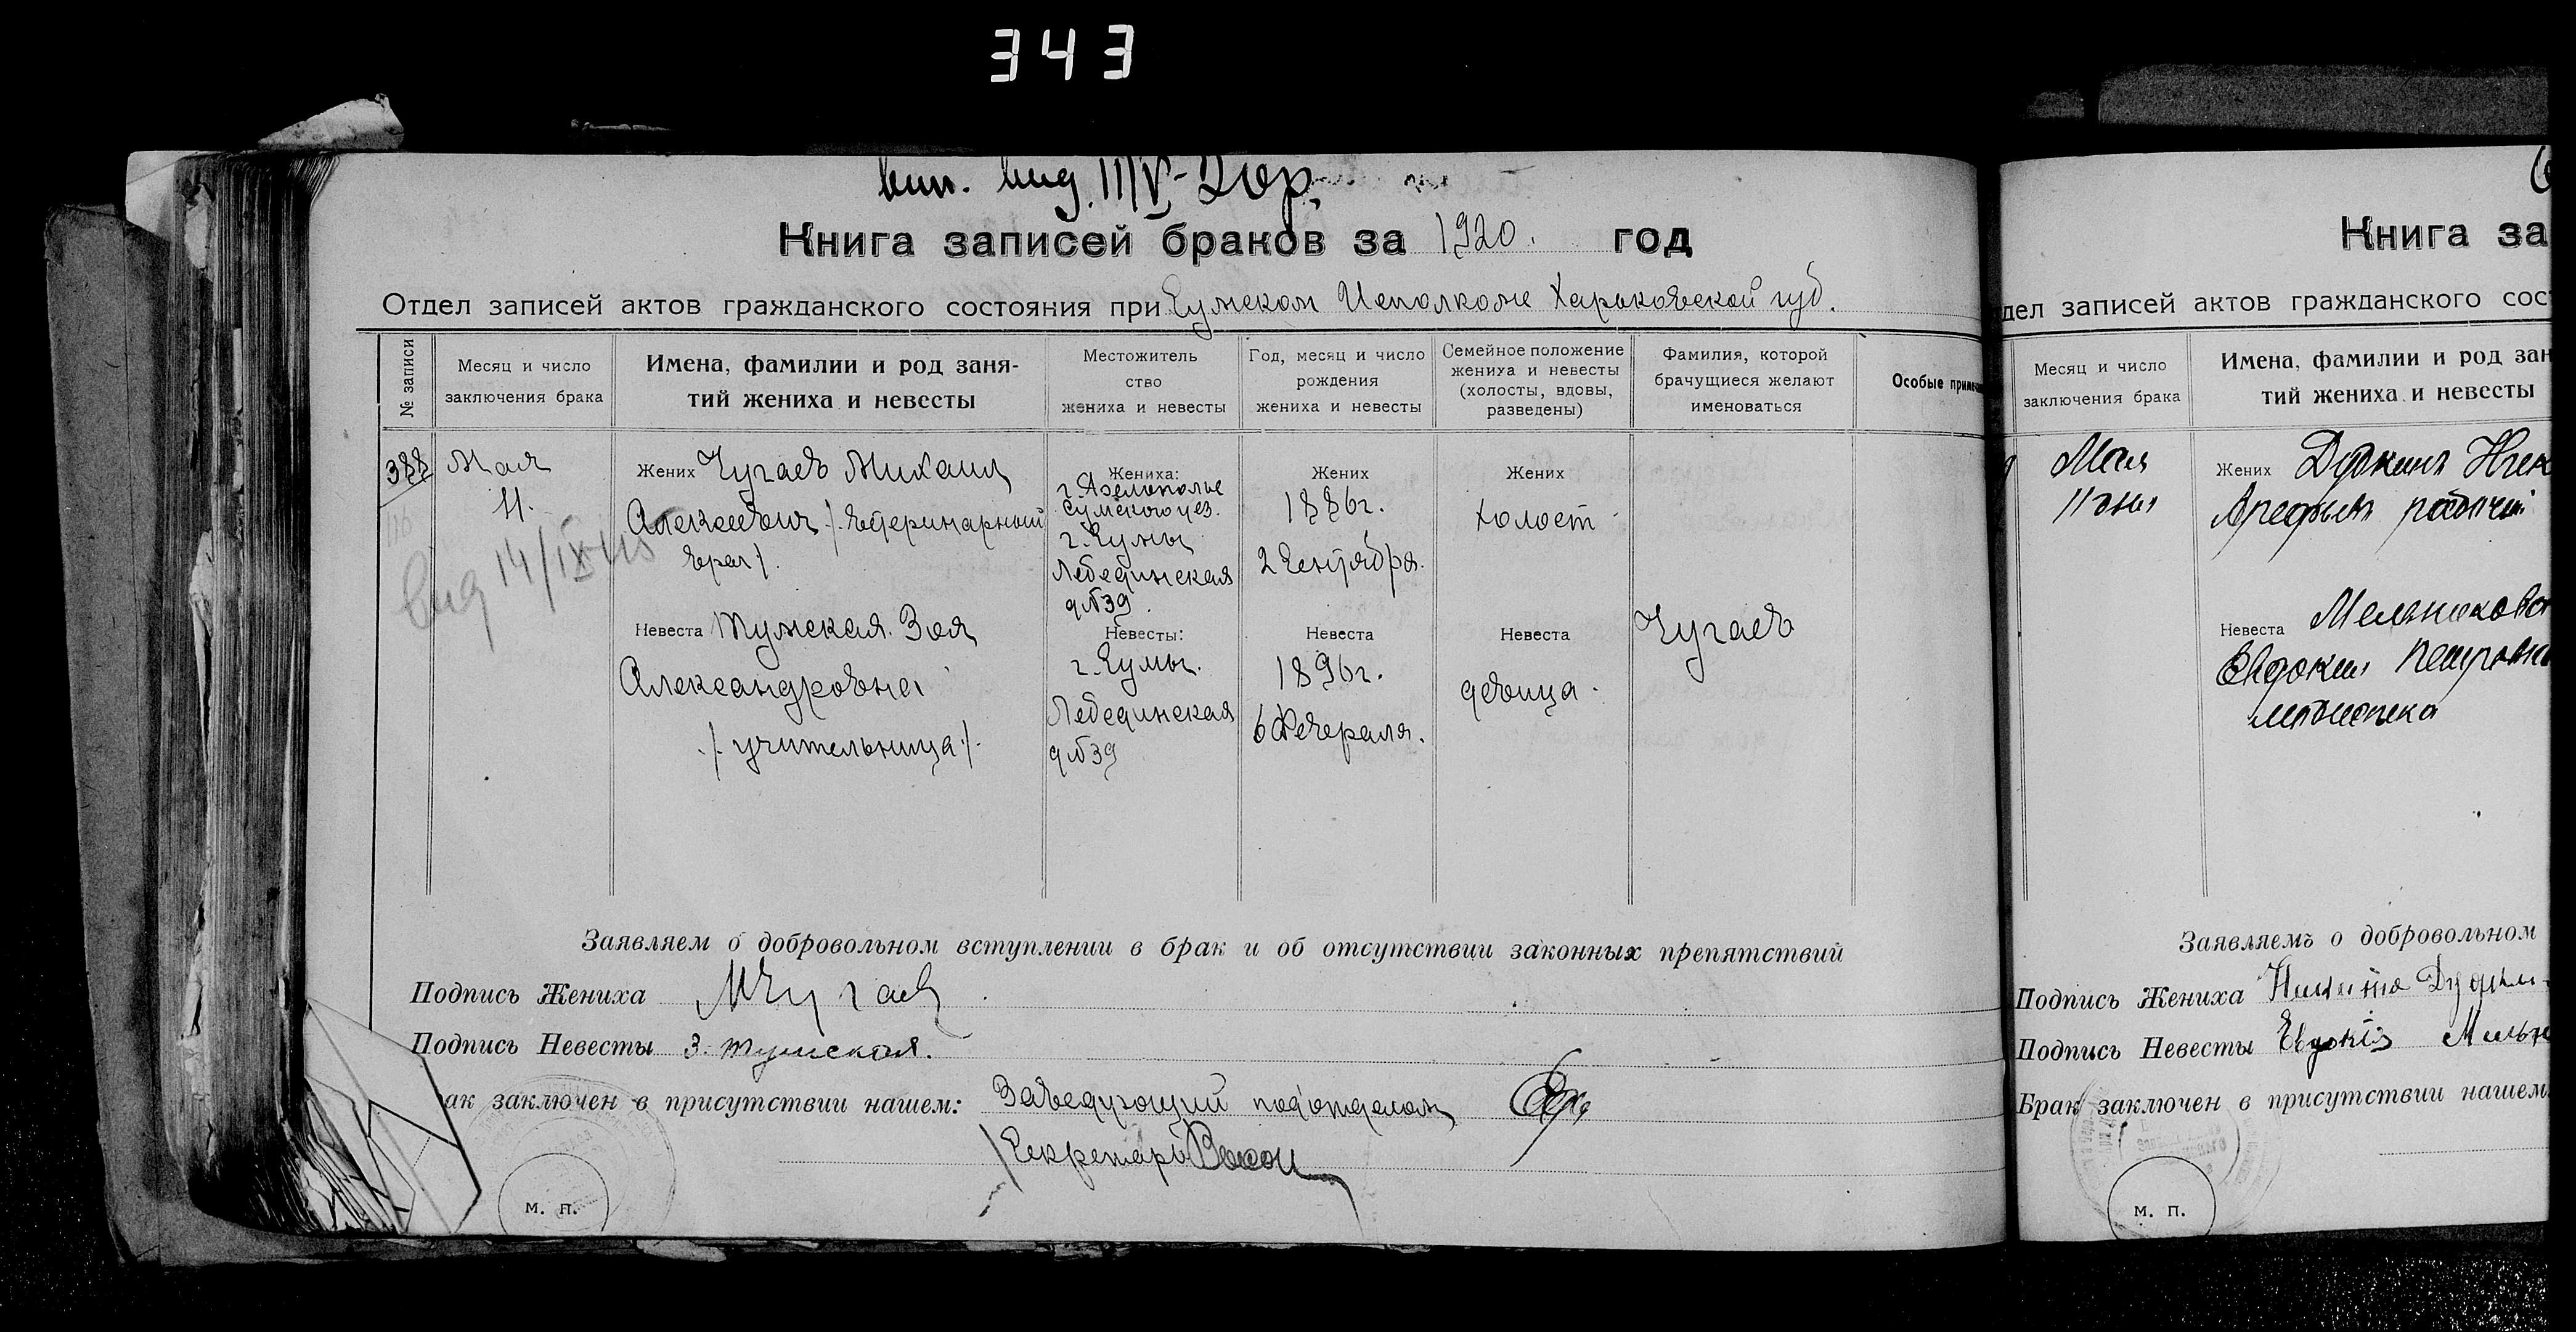 343
вип. вид. III/V-
Книга записей браков за 1920. год
Отдел записей актов гражданского состояния при Сумском Исполкоме Харьковской губ.
№ записи
Месяц и число
заключения брака
Имена, фамилии и род заня-
тий жениха и невесты
Местожитель
ство
жениха и невесты
Год, месяц и число
рождения
жениха и невесты
Семейное положение
жениха и невесты
(холосты, вдовы,
разведены)
Фамилия, которой
брачущиеся желают
именоваться
Особые примеча
388
Мая
11.
вид 14/IX 45
Жених Чугаев Михаил
Алексеевич /. ветеринарный
врач /.
Жениха:
Сумского уез.
г. Сумы
Лебединская
д №39.
Жених
1886г.
2 Сентября.
Жених
холост
Невеста Тумская Зоя
Александровна
./. учительница /.
Невесты:
г. Сумы.
Лебединская
д №39
Невеста
1896г.
6 Февраля.
Невеста
девица.
Чугаев
Заявляем о добровольном вступлении в брак и об отсутствии законных препятствий
Подпись Жениха МЧугаев
Подпись Невесты З. Тумская.
ак заключен в присутствии нашем: Заведующий подотделом
Секретарь
м. п.
Книга за
дел записей актов гражданского сос
Месяц и число
заключения брака
Имена, фамилии и род зан
тий жениха и невесты
Мая
11 дня
Жених
рабочий
Невеста
Евдокия Петровна
Заявляемъ о добровольном
Подпись Жениха Никита
Подпись Невесты Евдокія
Брак заключен в присутствии нашем
м. п.